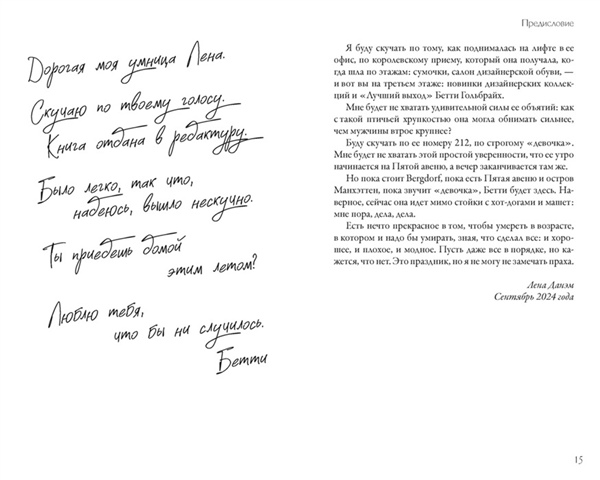 Дорогая моя умница Лена.
Скучаю по твоему голосу.
Книга отдана в редактуру.
Было легко, так что,
надеюсь, вышло нескучно.
Ты приедешь домой
этим летом?
Люблю тебя,
что бы ни случилось.
Бетти
Предисловие
Я буду скучать по тому, как поднималась на лифте в ее
офис, по королевскому приему, который она получала, ко-
гда шла по этажам: сумочки, салон дизайнерской обуви, —
и вот вы на третьем этаже: новинки дизайнерских коллек-
ций и «Лучший выход» Бетти Голбрайх.
Мне будет не хватать удивительной силы ее объятий: как
с такой птичьей хрупкостью она могла обнимать сильнее,
чем мужчины втрое крупнее?
Буду скучать по ее номеру 212, по строгому «девочка».
Мне будет не хватать этой простой уверенности, что ее утро
начинается на Пятой авеню, а вечер заканчивается там же.
Но пока стоит Bergdorf, пока есть Пятая авеню и остров
Манхэттен, пока звучит «девочка», Бетти будет здесь. На-
верное, сейчас она идет мимо стойки с хот-догами и машет:
мне пора, дела, дела.
Есть нечто прекрасное в том, чтобы умереть в возрасте,
в котором и надо бы умирать, зная, что сделал все: и хоро-
шее, и плохое, и модное. Пусть даже все в порядке, но ка-
жется, что нет. Это праздник, но я не могу не замечать праха.
Лена Данэм
Сентябрь 2024 года
15